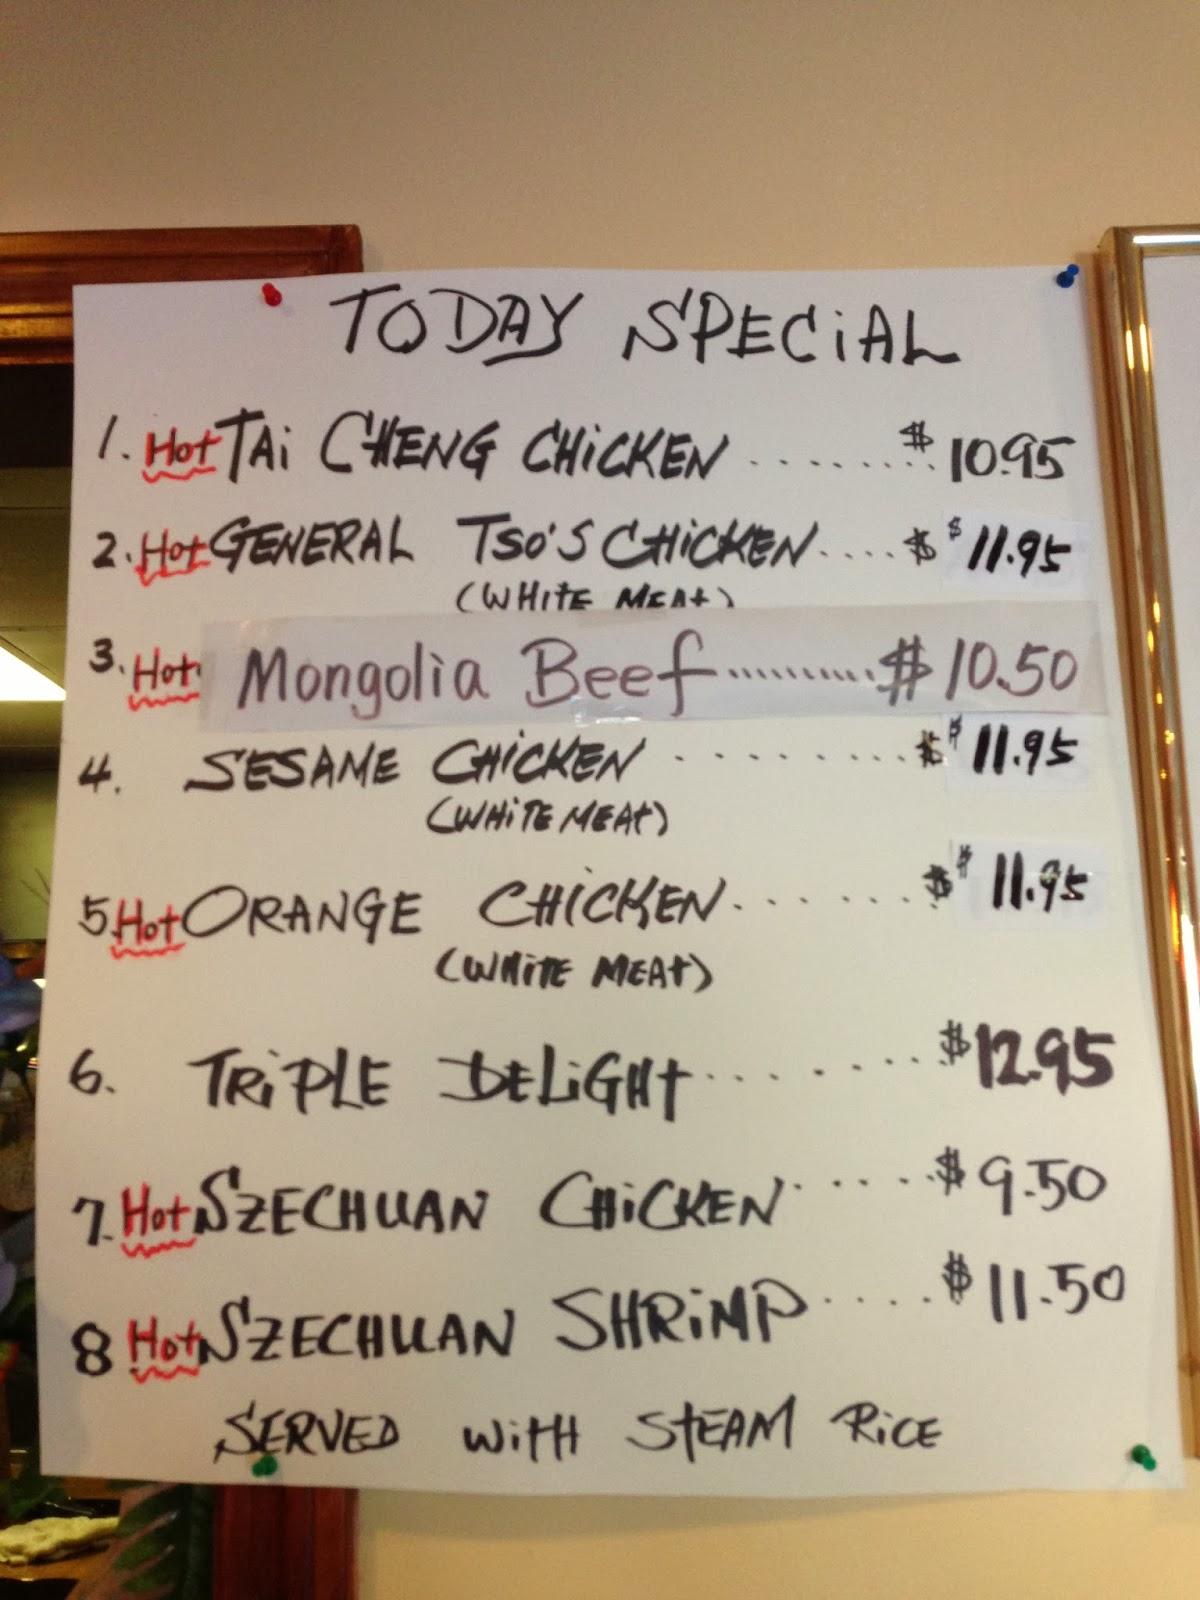 TODAY SPECiAL
1. Hot TAi CHENG CHiCKEN ........ $ 10.95
2. Hot GENERAL TSO'S CHiCKEN .... $ $ 11.95
(WHITE MEAt)
3. Hot Mongolia Beef .......... $ 10.50
4. SESAME CHiCKEN ........ $ $ 11.95
(WHiTE MEAt)
5. Hot ORANGE CHiCKEN ....... $ $ 11.95
(WHiTE MEAt)
6. TRiPLE DELiGHt ....... $ 12.95
7. Hot SZECHUAN CHiCKEN ..... $ 9.50
8 Hot SZECHUAN SHRiMP ..... $ 11.50
SERVED WiTH STEAM RiCE